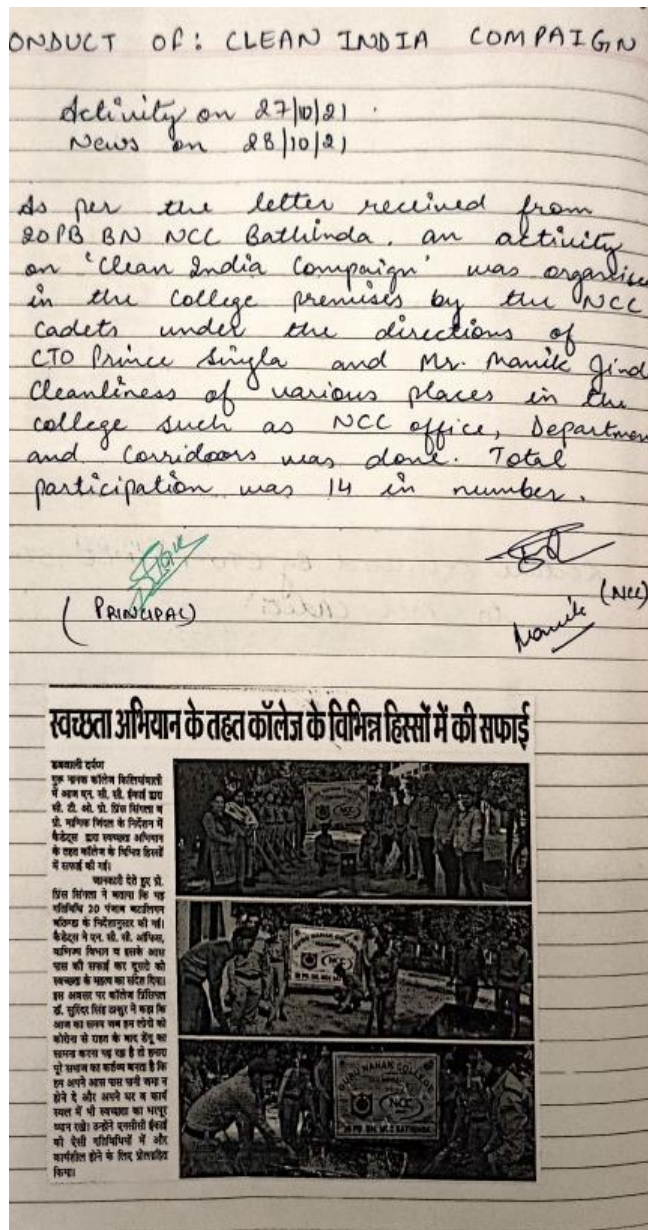 ONDUCT OF: CLEAN INDIA COMPAIGN
Activity on 27/10/21.
News on 28/10/21
As per the letter received from
20PB BN NCC Bathinda. an activity
on 'Clean India Compaign' was organise
in the college premises by the NCC
cadets under the directions of
CTO Prince Singla and Mr. Manik Jind
Cleanliness of various places in the
college such as NCC office, Departmen
and Corridoors was done. Total
participation was 14 in number.
(PRINCIPAL)
(NCC)
Manik
स्वच्छता अभियान के तहत कॉलेज के विभिन्न हिस्सों में की सफाई
डबवाली दर्पण
गुरू नानक कॉलेज किलियांवाली
में आज एन. सी. सी. ईकाई द्वारा
सी. टी. ओ. प्रो. प्रिंस सिंगला व
प्रो. माणिक जिंदल के निर्देशन में
कैडेट्स द्वारा स्वच्छता अभियान
के तहत कॉलेज के विभिन्न हिस्सों
में सफाई की गई।
जानकारी देते हुए प्रो.
प्रिंस सिंगला ने बताया कि यह
गतिविधि 20 पंजाब बटालियन
बठिण्डा के निर्देशानुसार की गई।
कैडेट्स ने एन. सी. सी. ऑफिस,
वाणिज्य विभाग व इसके आस
पास की सफाई कर दूसरो को
स्वच्छता के महत्व का संदेश दिया।
इस अवसर पर कॉलेज प्रिंसिपल
डॉ. सुरिंदर सिंह ठाकुर ने कहा कि
आज का समय जब हम लोगों को
कोरोना से राहत के बाद डेंगू का
सामना करना पड़ रहा है तो हमारा
पूरे समाज का कर्तव्य बनता है कि
हम अपने आस पास पानी जमा न
होने दे और अपने घर व कार्य
स्थल में भी स्वच्छता का भरपूर
ध्यान रखे। उन्होंने एनसीसी ईकाई
को ऐसी गतिविधियों में और
कार्यशील होने के लिए प्रोत्साहित
किया।
GURU NANAK COLLEGE
NCC
GURU NANAK COLLEGE
NCC
20 PB. BN. NCC BATHINDA